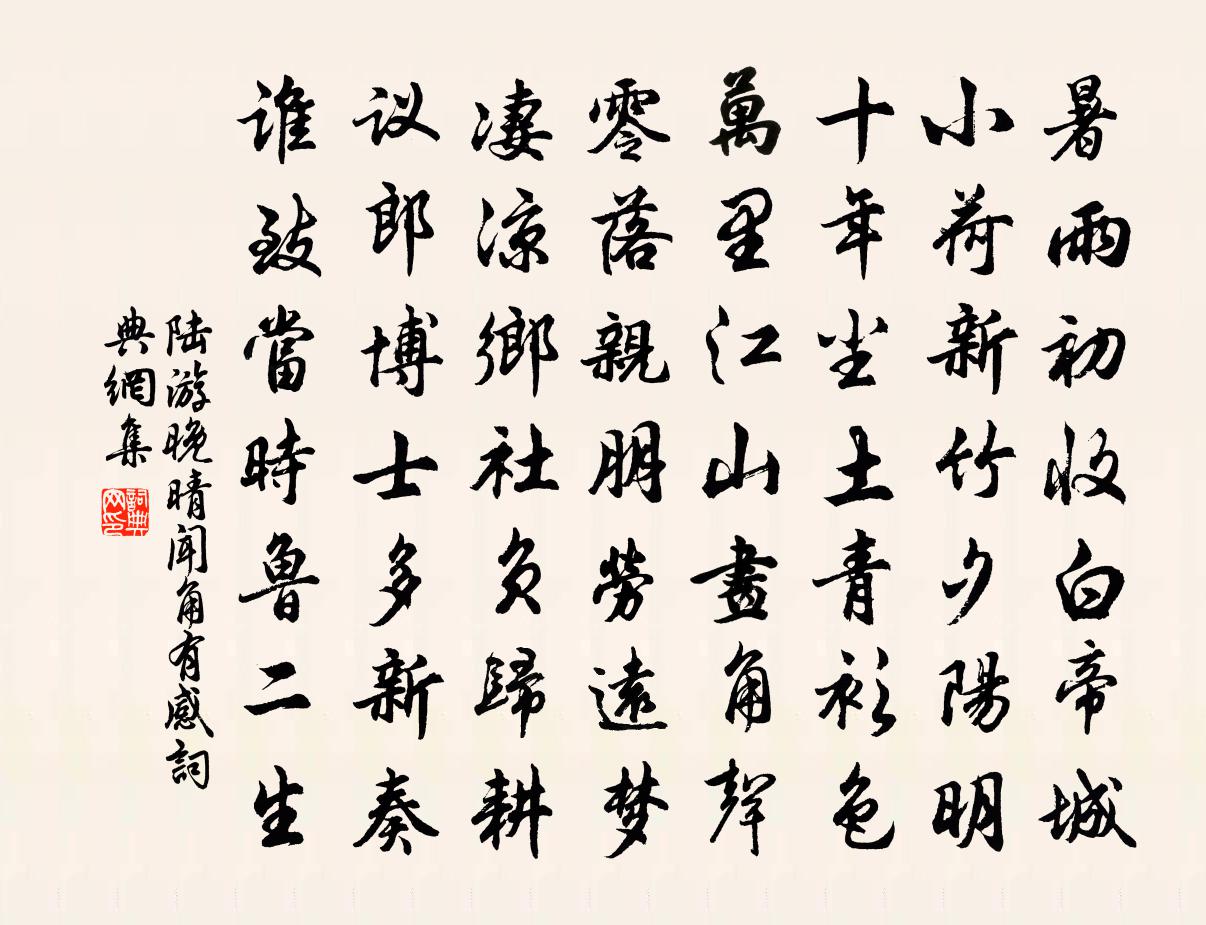 暑雨初收白帝城
小荷新竹夕陽明
十年尘土青衫色
萬里江山畫角聲
零落親朋勞遠梦
凄涼鄉社負歸耕
议郎博士多新奏
谁致當時魯二生
陆游晚晴闻角有感詞
典網集
詞典网印